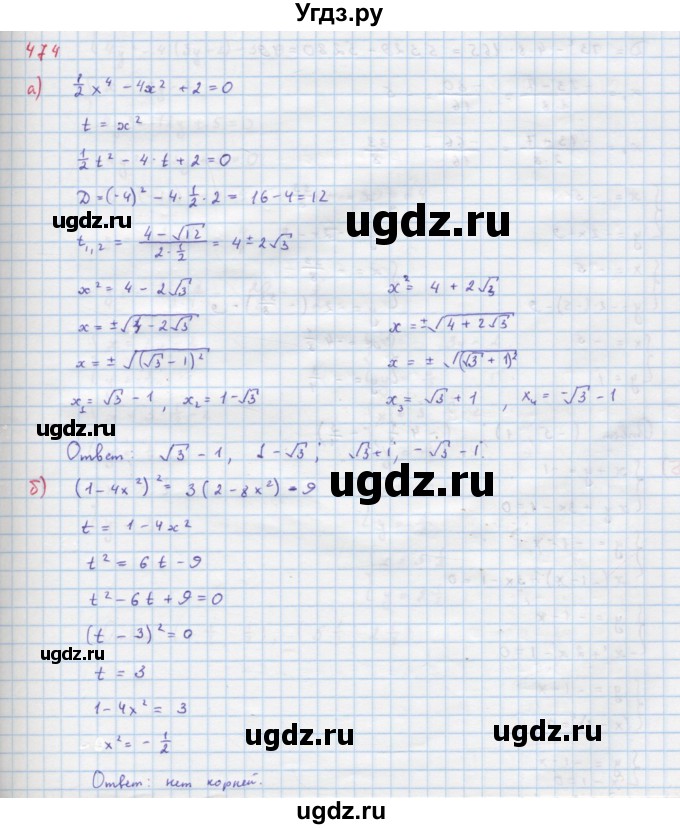 Угдз.ру
474
а) 1/2 x⁴ - 4x² + 2 = 0
t = x²
1/2 t² - 4·t + 2 = 0
D = (-4)² - 4·1/2·2 = 16 - 4 = 12
ugdz.ru
ugdz.ru
t₁,₂ = (4 - √12)/(2·1/2) = 4 ± 2√3
x² = 4 - 2√3
x² = 4 + 2√3
x = ±√(4 - 2√3)
x = ±√(4 + 2√3)
x = ± √((√3 - 1)²)
x = ± √((√3 + 1)²)
x₁ = √3 - 1, x₂ = 1 - √3
x₃ = √3 + 1, x₄ = -√3 - 1
ugdz.ru
Ответ: √3 - 1, 1 - √3; √3 + 1, -√3 - 1.
б) (1 - 4x²)² = 3(2 - 8x²) - 9
ugdz.ru
t = 1 - 4x²
t² = 6t - 9
t² - 6t + 9 = 0
(t - 3)² = 0
ugdz.ru
t = 3
1 - 4x² = 3
ugdz.ru
ugdz.ru
x² = - 1/2
Ответ: нет корней.
ugdz.ru